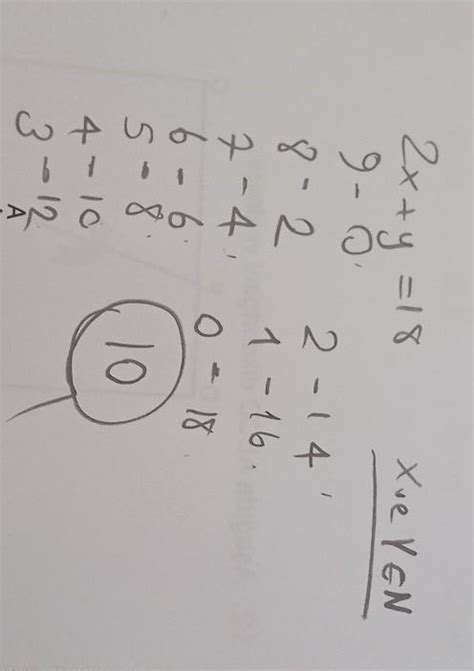 2x + y = 18
x ve y ∈ N
9 - 0
8 - 2
7 - 4
6 - 6
5 - 8
4 - 10
3 - 12
2 - 14
1 - 16
0 - 18
10